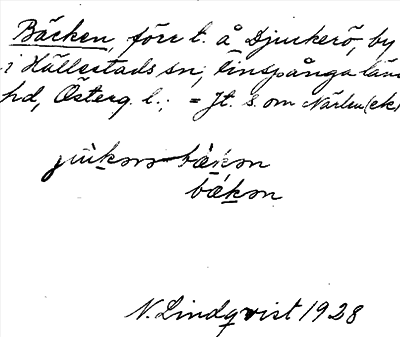 Bäcken, förr t. å Djurkerö, by
i Hällestads sn, Finspånga läns
hd, Österg. l.; = Jt. s. om Närlen (ek)
bæ̀kən
bǽkən
N. Lindqvist 1928